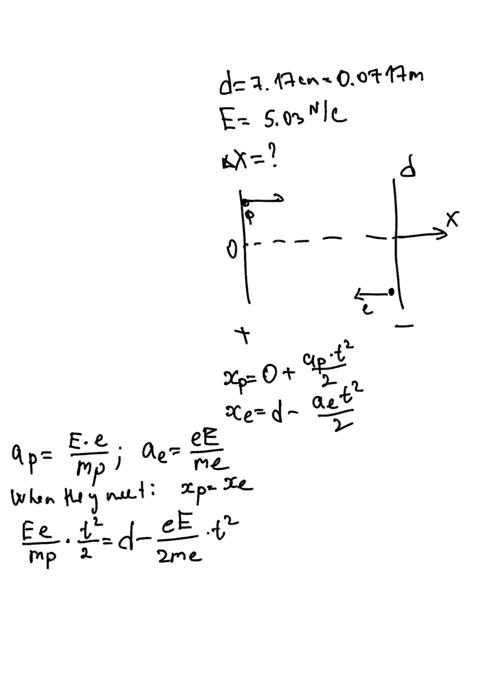 d=7.17cm=0.0717m
E= 5.03 N/C
ΔX=?
d
p
X
0
e
+
−
xp=0+ ap·t²/2
xe=d- aet²/2
ap= E·e/mp ; ae= eE/me
When they meet: xp=xe
Ee/mp · t²/2 = d- eE/2me ·t²